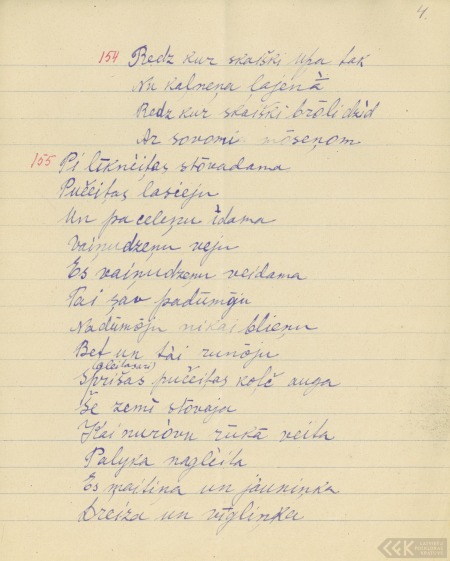 4.
154 Redz kur skaiški upa tak
Nu kalnena ļajenà
Redz kur skaiški brōli dzìd
Ar sovomi mōseņom
155 Pi līknéitas stōvadama
Pučeitas lasieju
Un pa celeņu īdama
Vaiņudzeņu veju
Es vaiņudzeņu veidama
Tai šav padūmōju
Nadūmōju nikai blieņu
Bet un tài runōju
Sprišas pučeitas kolč auga
Še zemī stōvaja
Kai nurōvu rūkā veita
Palyka naglèita
Es maitina un jàuninka
Dreiža un vīglinka